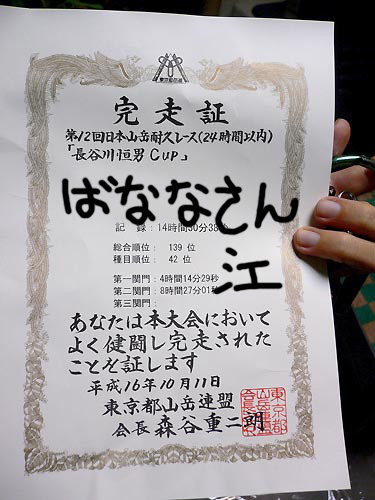 東京都岳連
完走証
第12回日本山岳耐久レース(24時間以内)
「長谷川恒男CUP」
ばななさん
江
記 録：14時間30分38
総合順位： 139 位
種目順位： 42 位
第一関門：4時間14分29秒
第二関門：8時間27分01秒
第三関門：
あなたは本大会において
よく健闘し完走された
ことを証します
平成16年10月11日
東京都山岳連盟
会長 森谷重二朗